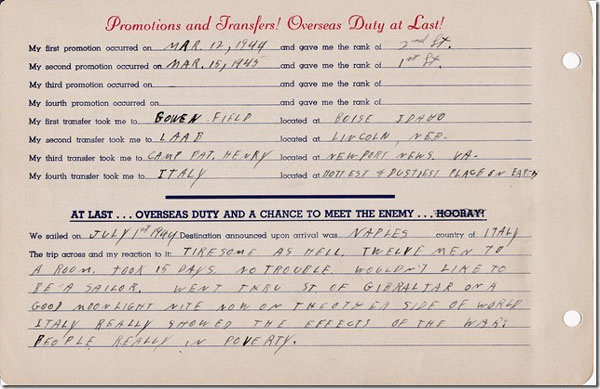 Promotions and Transfers! Overseas Duty at Last!
My first promotion occurred on MAR. 12, 1944 and gave me the rank of 2nd Lt.
My second promotion occurred on MAR. 15, 1945 and gave me the rank of 1st Lt.
My third promotion occurred on and gave me the rank of
My fourth promotion occurred on and gave me the rank of
My first transfer took me to GOWEN FIELD located at BOISE IDAHO
My second transfer took me to LAAB located at LINCOLN, NEB.
My third transfer took me to CAMP PAT. HENRY located at NEWPORT NEWS, VA.
My fourth transfer took me to ITALY located at HOTTEST & DUSTIEST PLACE ON EARTH
AT LAST . . . OVERSEAS DUTY AND A CHANCE TO MEET THE ENEMY . . . HOORAY!
We sailed on JULY 1st 1944 Destination announced upon arrival was NAPLES country of ITALY
The trip across and my reaction to it: TIRESOME AS HELL. TWELVE MEN TO
A ROOM. TOOK 15 DAYS. NO TROUBLE. WOULDN'T LIKE TO
BE A SAILOR. WENT THRU ST. OF GIBRALTAR ON A
GOOD MOONLIGHT NITE NOW ON THE OTHER SIDE OF WORLD
ITALY REALLY SHOWED THE EFFECTS OF THE WAR.
PEOPLE REALLY IN POVERTY.